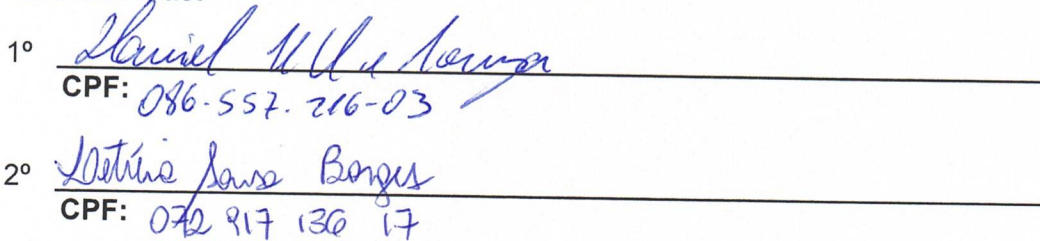 1º Daniel
CPF: 086.557.216-03
2º Letícia Sousa Borges
CPF: 072 917 136 17